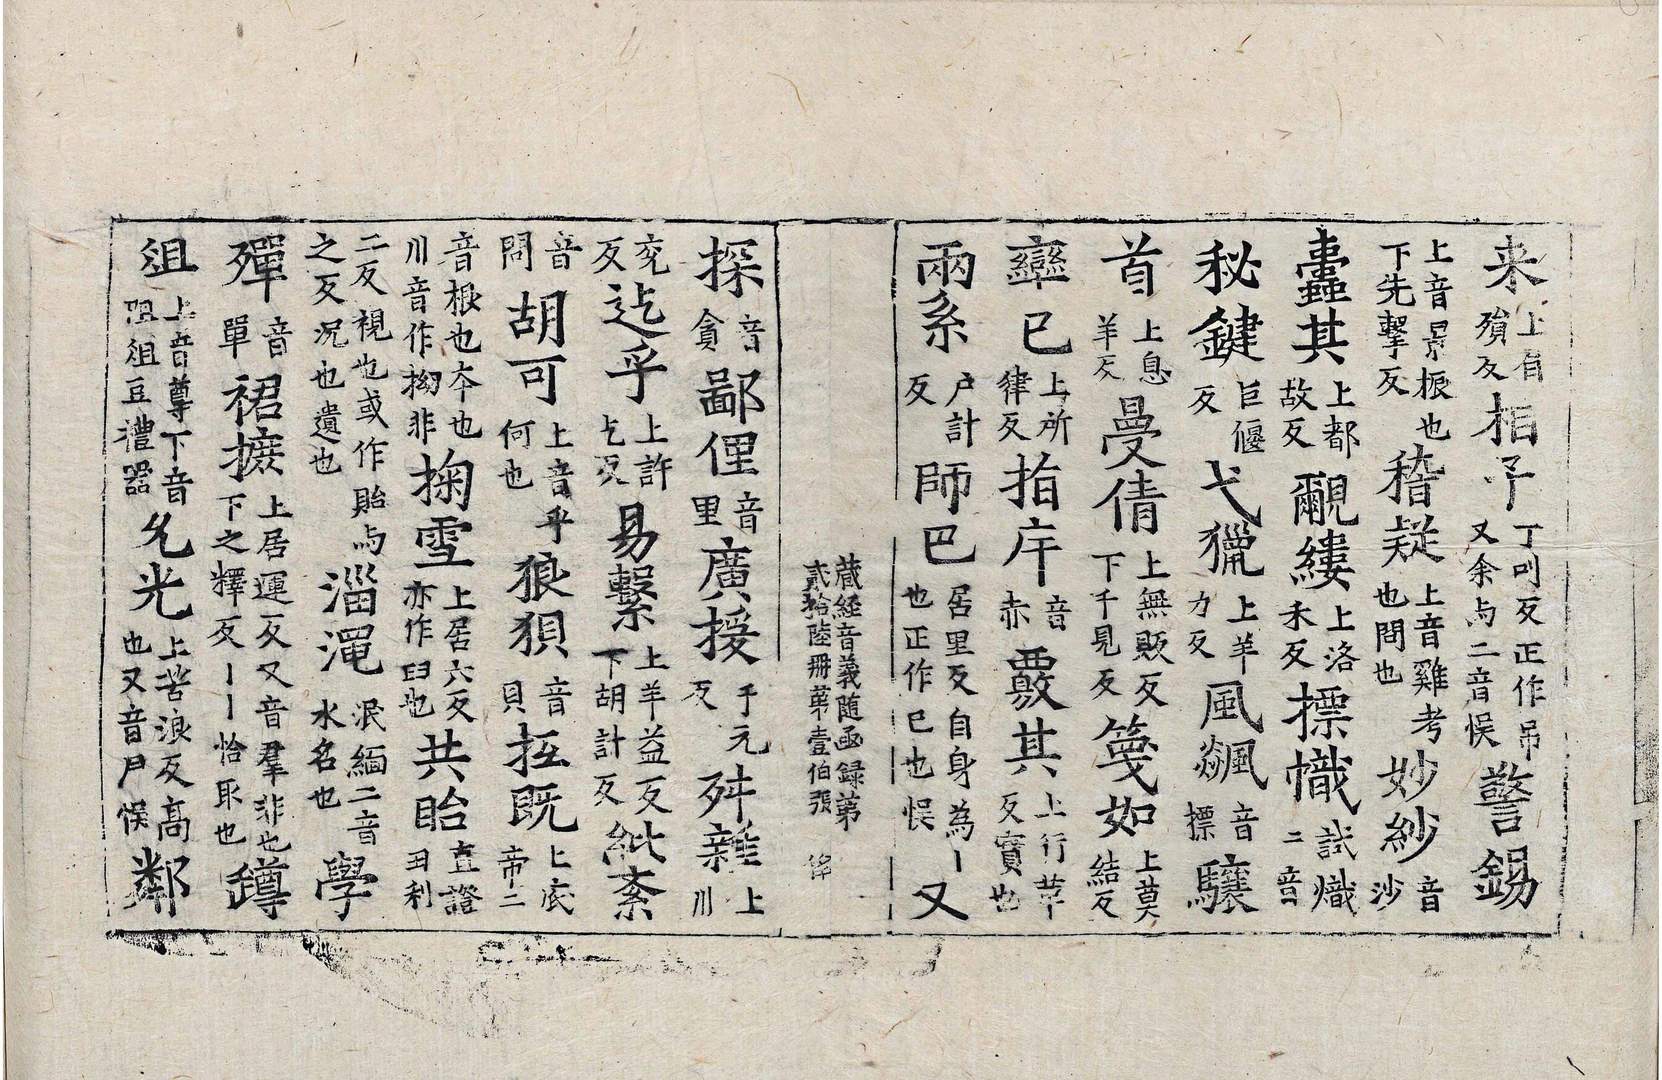 来上有殞反相子丁叫反正作弔又余与二音悮警錫
上音景振也下先擊反稽疑上音雞考也問也妙紗音沙
蠹其上都故反覼縷上洛禾反摽幟試熾二音
秘鍵巨偃反弋獵上羊力反風飈音摽驤
首上息羊反曼倩上無販反下千見反篾如上莫結反
䜌已上所律反指庌音赤覈其上行革反實也
兩系戶計反師巴居里反自身為丨也正作已也悮又
藏經音義随函録第貳拾陸冊第壹伯張
探音貪鄙俚音里廣援于元反舛雜上川
兖反迄乎上許乞反易繫上羊益反下胡計反紕紊
音問胡可上音乎何也狼狽音貝抵既上底帝二
音根也夲也川音作拗非掬雪上居六反亦作臼也共眙直證丑利
二反視也或作貽与之反况也遺也淄澠泯緬二音水名也學
殫音單裙摭上居運反又音羣非也下之釋反丨丨恰取也罇
俎上音尊下音阻俎豆禮器允光上苦浪反高也又音尸悮鄰